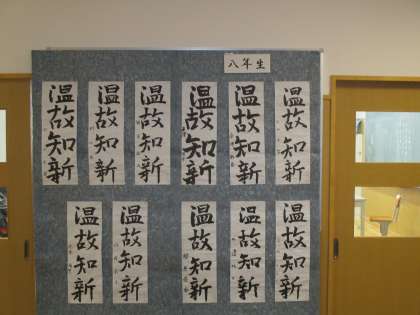 八年生
温故知新
温故知新
温故知新
温故知新
温故知新
温故知新
温故知新
温故知新
温故知新
温故知新
温故知新